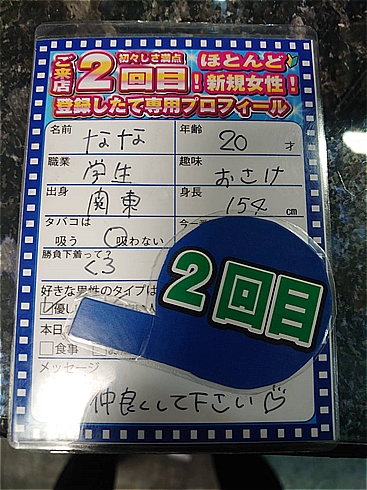 ご来店 初々しさ満点 2回目! ほとんど新規女性!
登録したて専用プロフィール
名前 なな 年齢 20 才
職業 学生 趣味 おさけ
出身 関東 身長 154 cm
タバコは
吸う 吸わない
勝負下着って?
くろ
2回目
好きな男性のタイプは
優し
本日
食事
メッセージ
仲良くして下さい♡